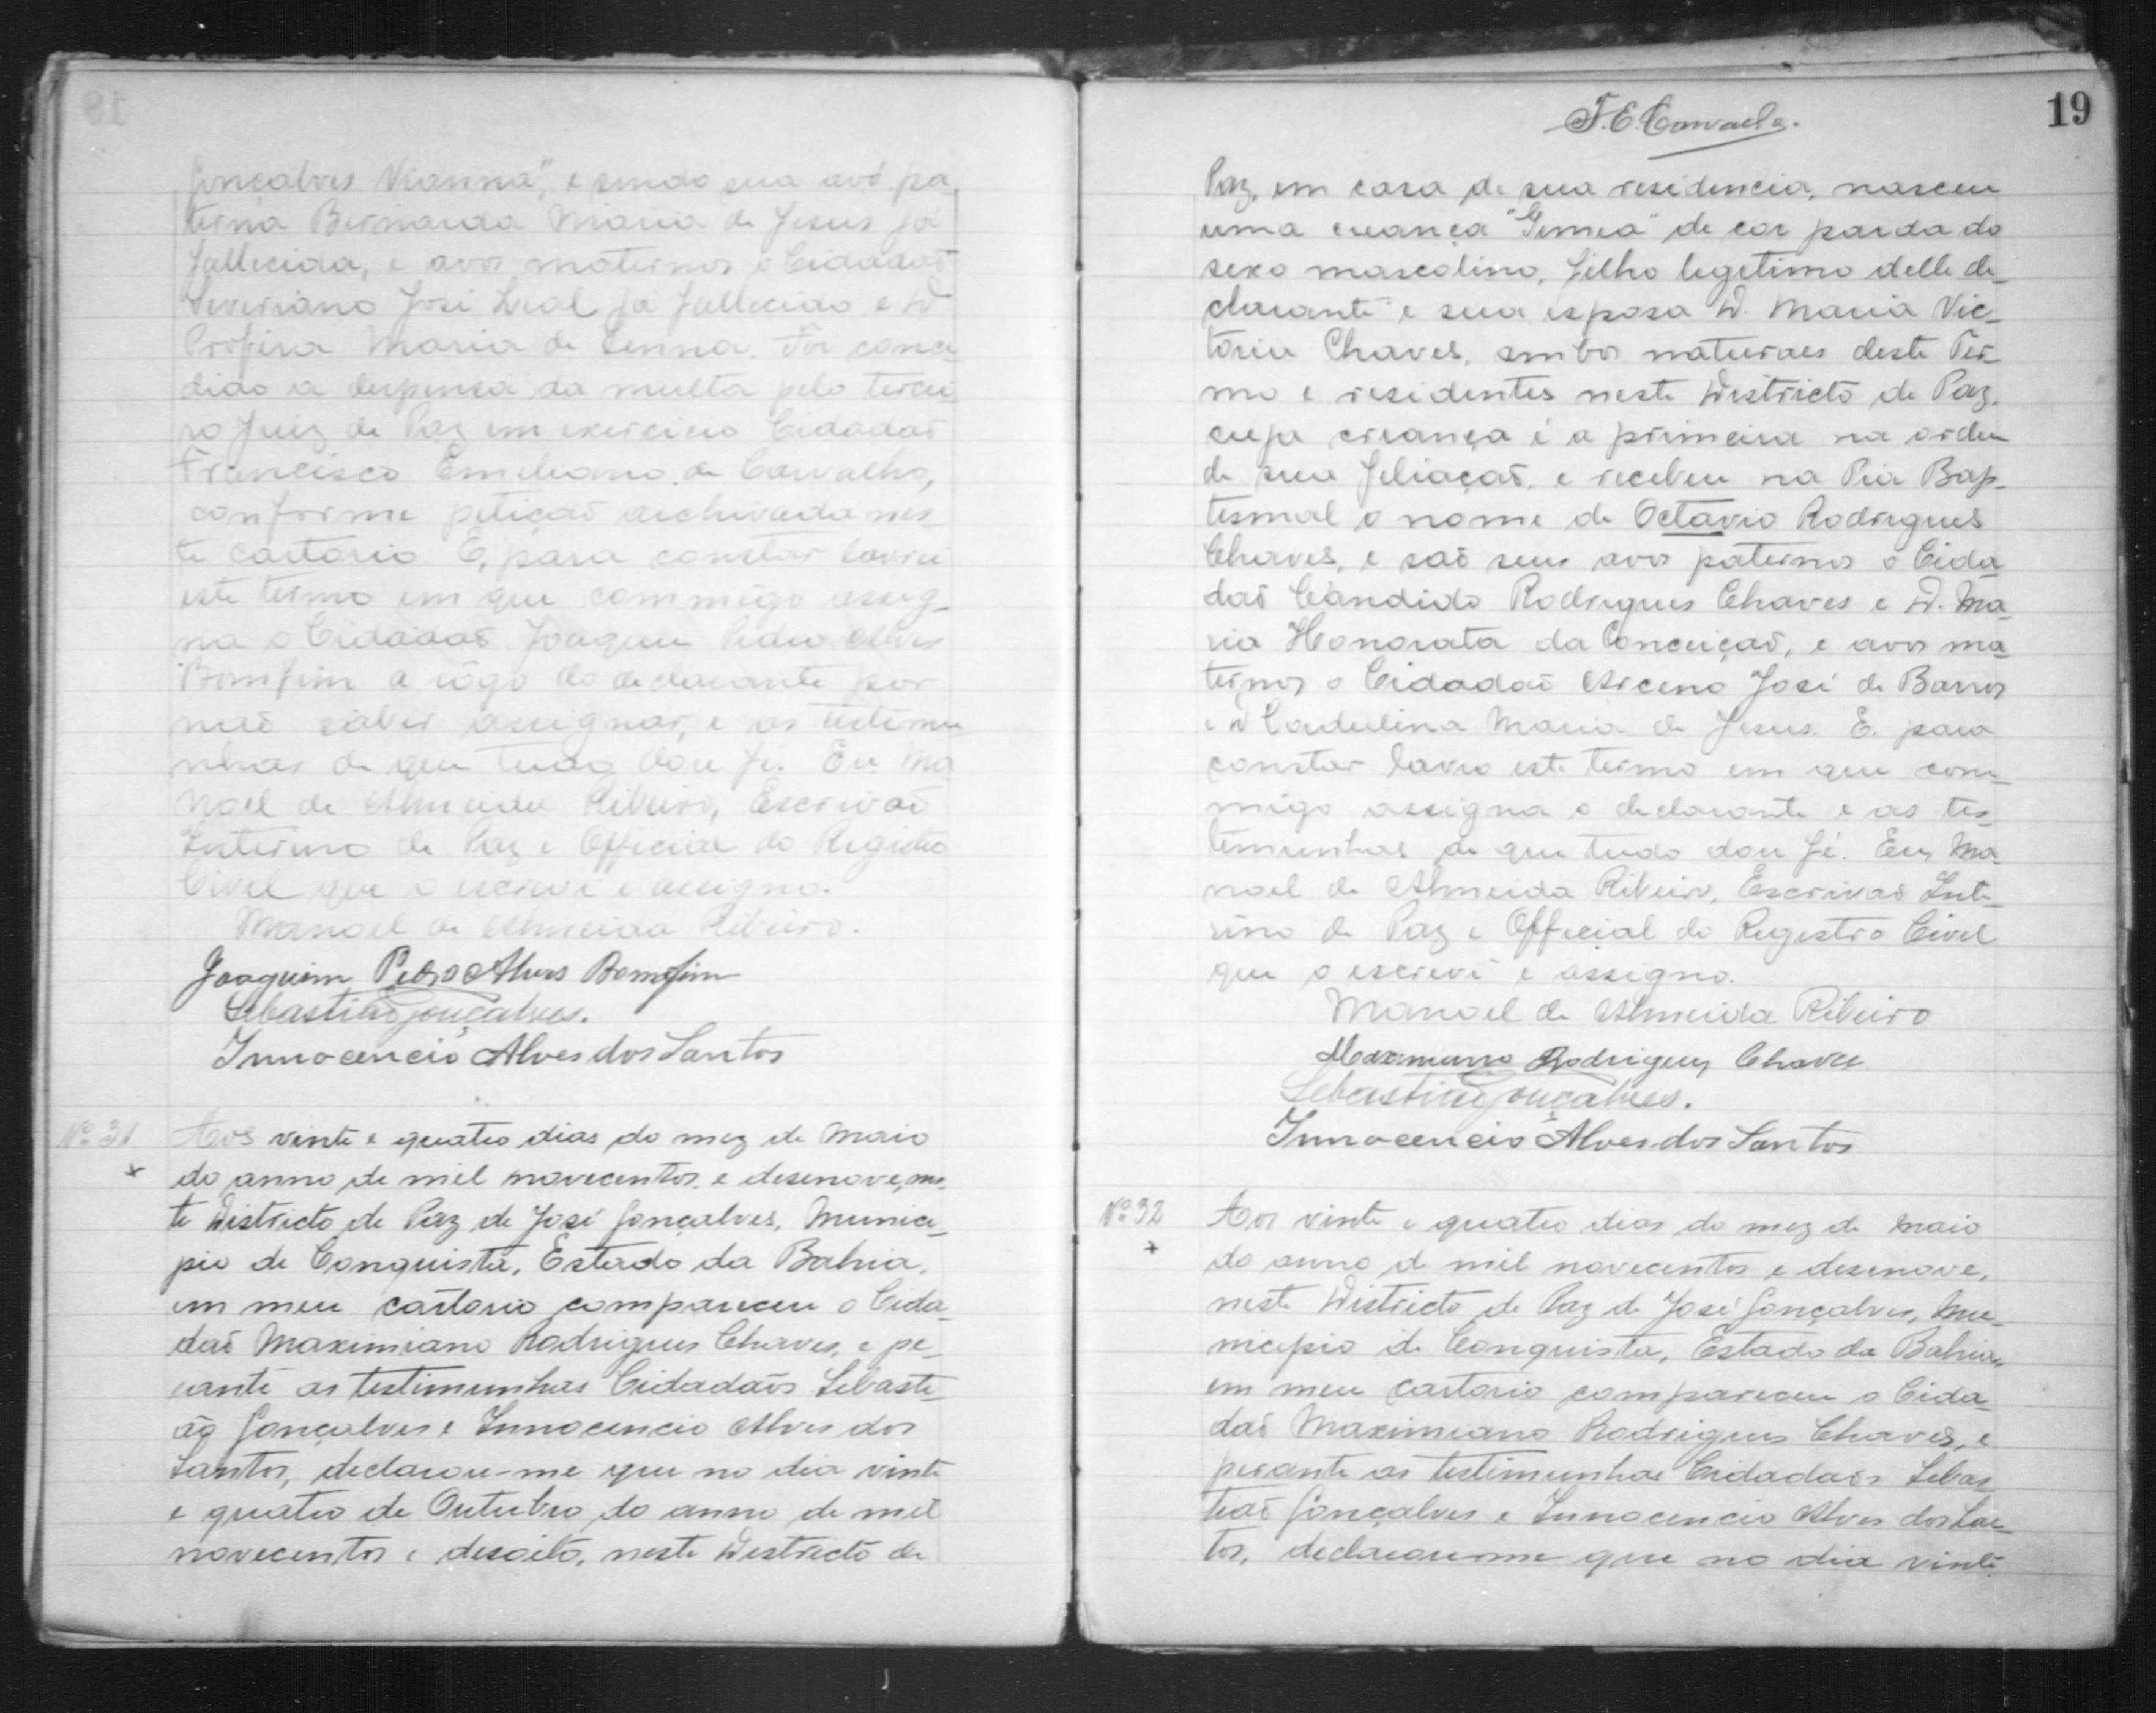 Gonçalves Vianna", e sendo sua avó pa-
terna Bernarda Maria de Jesus já
fallecida, e avos maternos o Cidadaõ
Severiano José Leal já fallecido e D.
Maria de Senna. Foi conce
dido a despensa da multa pelo tercei
ro Juiz de Paz em exercicio Cidadaõ
Francisco Emiliano de Carvalho,
conforme petiçaõ archivada nes
te cartorio. E, para constar lavrei
este termo em que commigo assig_
na o Cidadaõ Joaquim Pedro Alves
Bomfim a rôgo do declarante por
naõ saber assignar, e as testimu
nhas de que tudo dou fé. Eu Ma
noel de Almeida Ribeiro, Escrivaõ
Interino de Paz e Official do Registro
Civel que o escrevi e assigno.
Manoel de Almeida Ribeiro.
Joaquim Pedro Alves Bomfim
Sebastião Gonçalves.
Innocencio Alves dos Santos
Nº 31
Aos vinte e quatro dias do mez de Maio
do anno de mil novecentos e desenove, nes-
te Districto de Paz de José Gonçalves, Munici_
pio de Conquista, Estado da Bahia,
em meu cartorio compareceu o Cida_
daõ Maximiano Rodrigues Chaves, e pe_
rante as testimunhas Cidadaõs Sebasti_
ão Gonçalves e Innocencio Alves dos
Santos, declarou-me que no dia vinte
e quatro de Outubro do anno de mil
novecentos e desoito, neste Districto de
F. E. Carvalho.
19
Paz, em casa de sua residencia, nasceu
uma creança "Gemea" de cor parda do
sexo mascolino, filho legetimo delle de_
clarante e sua esposa D. Maria Vic_
toria Chaves, ambos naturaes deste Ter_
mo e residentes neste Districto de Paz,
cuja creança é a primeira na ordem
de sua feliaçaõ, e recebeu na Pia Bap_
tesmal o nome de Octavio Rodrigues
Chaves, e saõ seus avos paternos o Cida
daõ Candido Rodrigues Chaves e D. Ma_
ria Honorata da Conceiçaõ, e avos ma_
ternos o Cidadaõ Arceno José de Barros
e D Cordulina Maria de Jesus. E. para
constar lavro este termo em que com_
migo assigna o declarante e as tes_
temunhas de que tudo dou fé. Eu, Ma_
noel de Almeida Ribeiro, Escrivaõ Inte_
rino de Paz e Official do Registro Civel
que o escrevi e assigno.
Manoel de Almeida Ribeiro
Maxmiano Rodrigues Chaves
Sebastião Gonçalves.
Innocencio Alves dos Santos
Nº 32
Aos vinte e quatro dias do mez de Maio
do anno de mil novecentos e desenove,
neste Districto de Paz de José Gonçalves, Mu_
nicipio de Conquista, Estado da Bahia,
em meu cartorio compareceu o Cida_
daõ Maximiano Rodrigues Chaves, e
perante as testimunhas Cidadaõs Sebas
tiaõ Gonçalves e Innocencio Alves dos San_
tos, declarou-me que no dia vinte